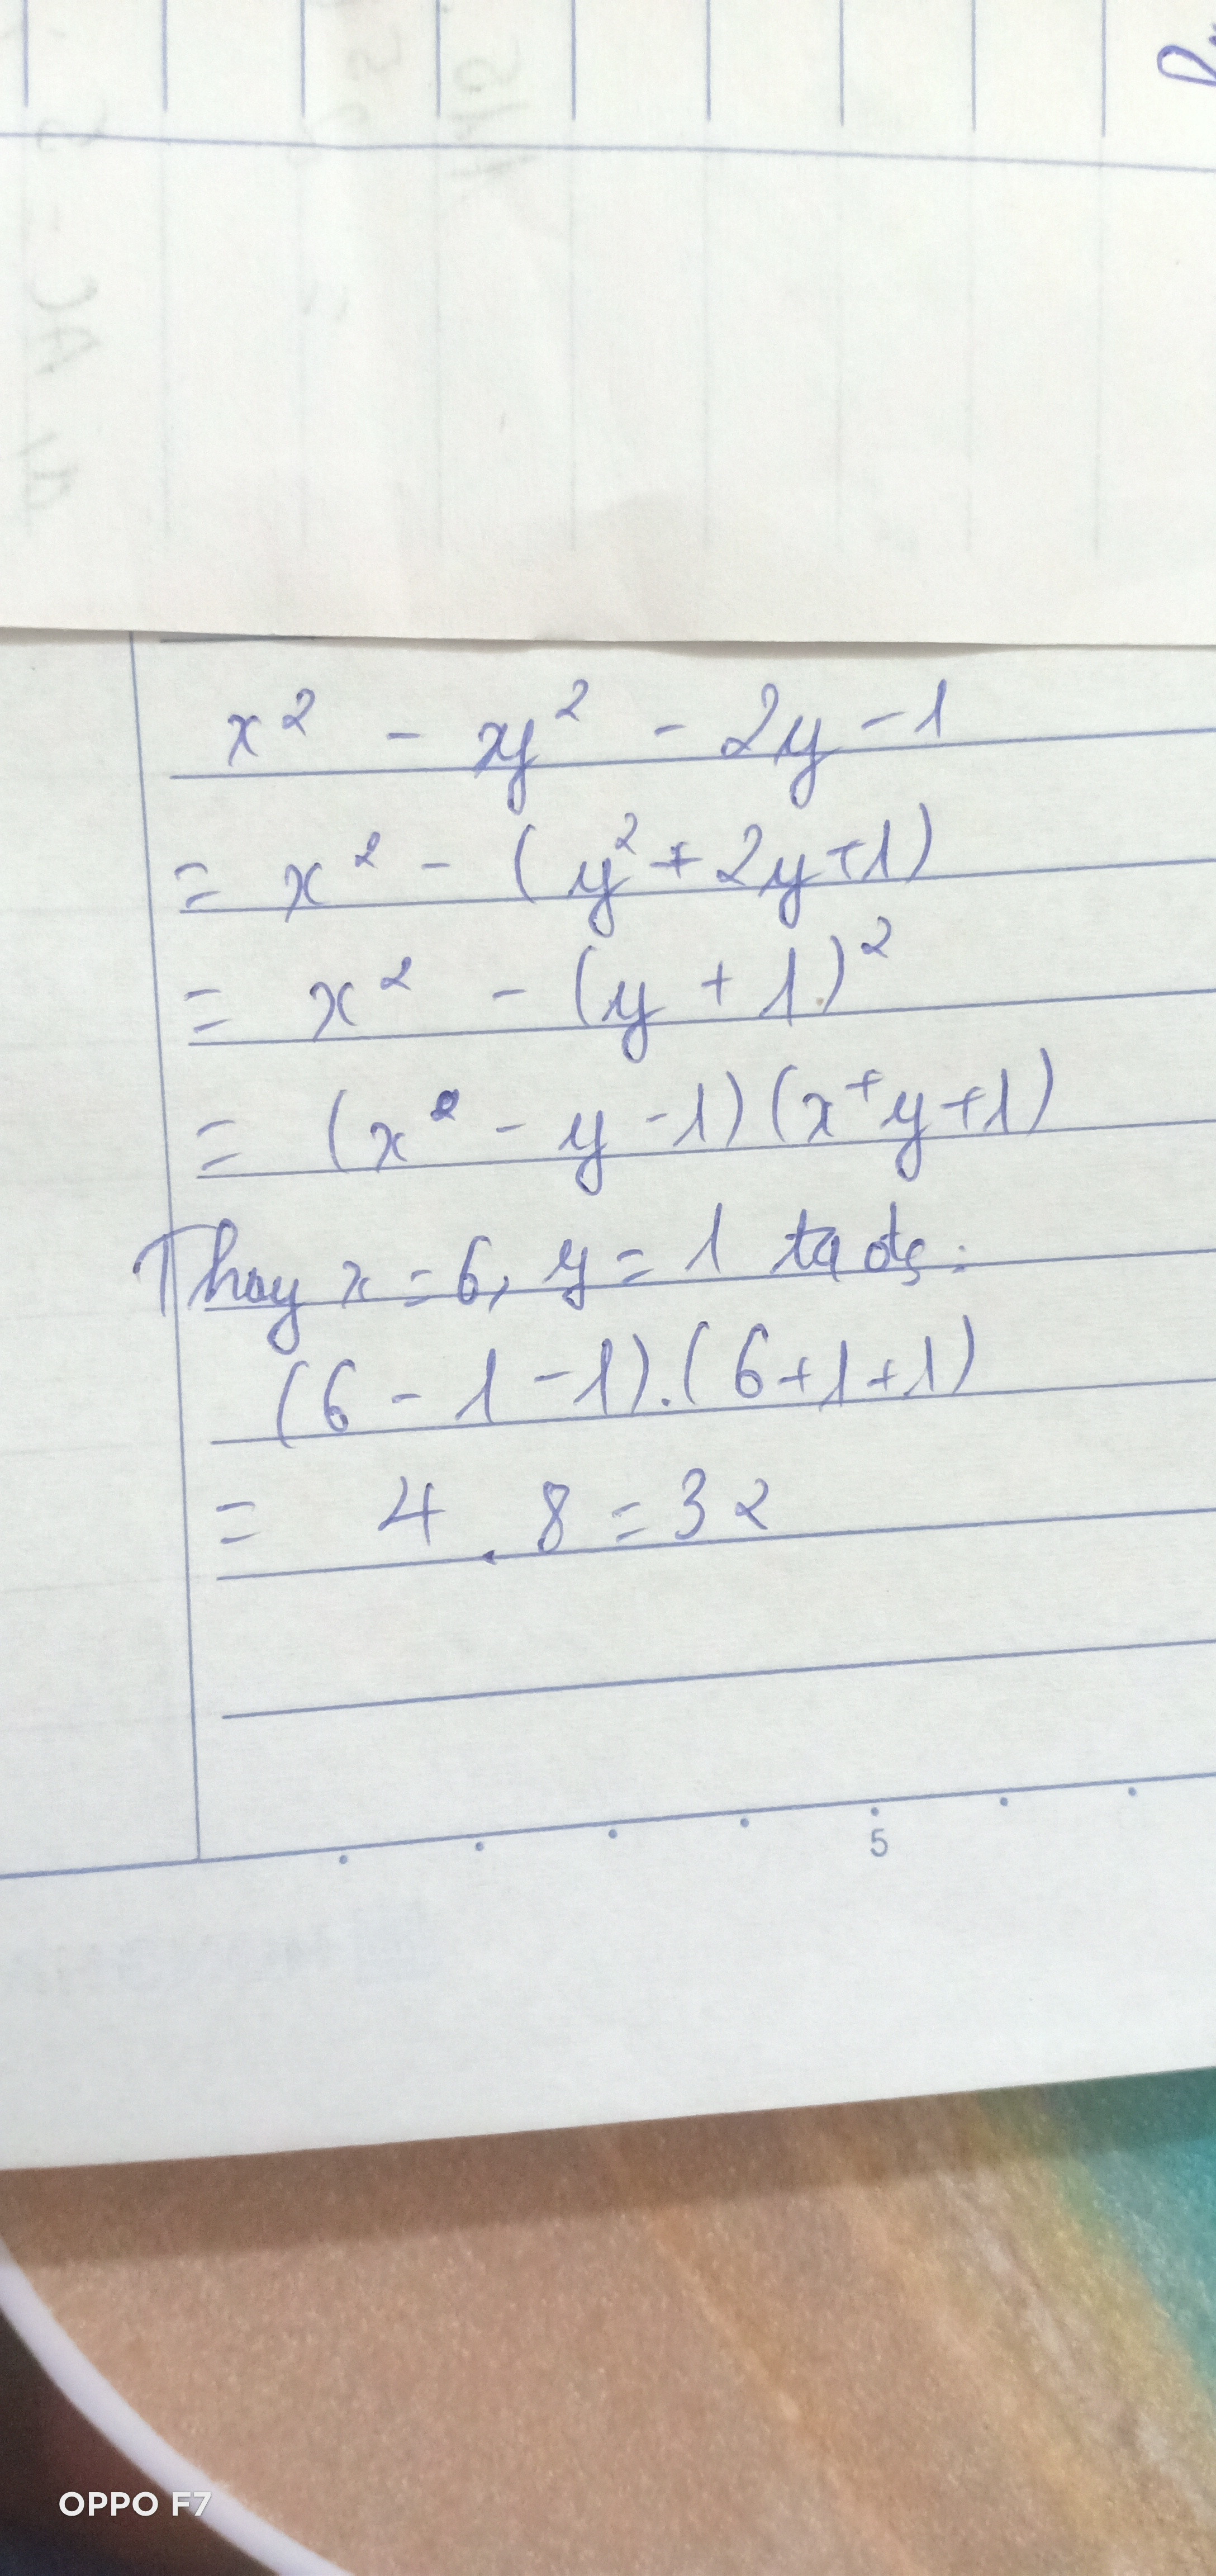 x² - xy² - 2y - 1
= x² - (y² + 2y + 1)
= x² - (y + 1)²
= (x² - y - 1)(x + y + 1)
Thay x = 6, y = 1 ta đc:
(6 - 1 - 1).(6 + 1 + 1)
= 4 . 8 = 32
5
OPPO F7